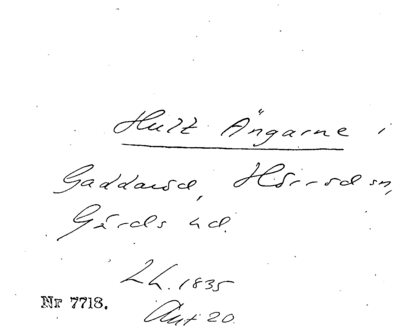 Hult Ängarne i
Gaddarød, Hörröd sn,
Gärds hd.
L.h. 1835
Nr 7718.
Akt 20.